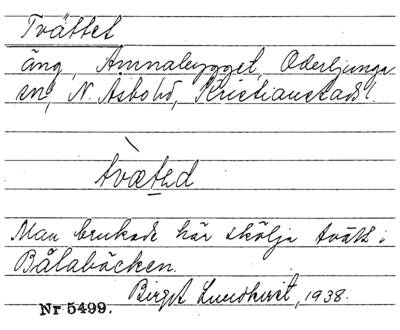 Tvättet
äng, Amnabygget, Oderljunga
sn, N. Åsbo hd, Kristianstads l.
tvæted
Man brukade här skölja tvätt i
Bålabäcken.
Birgit Lundkvist, 1938.
Nr 5499.